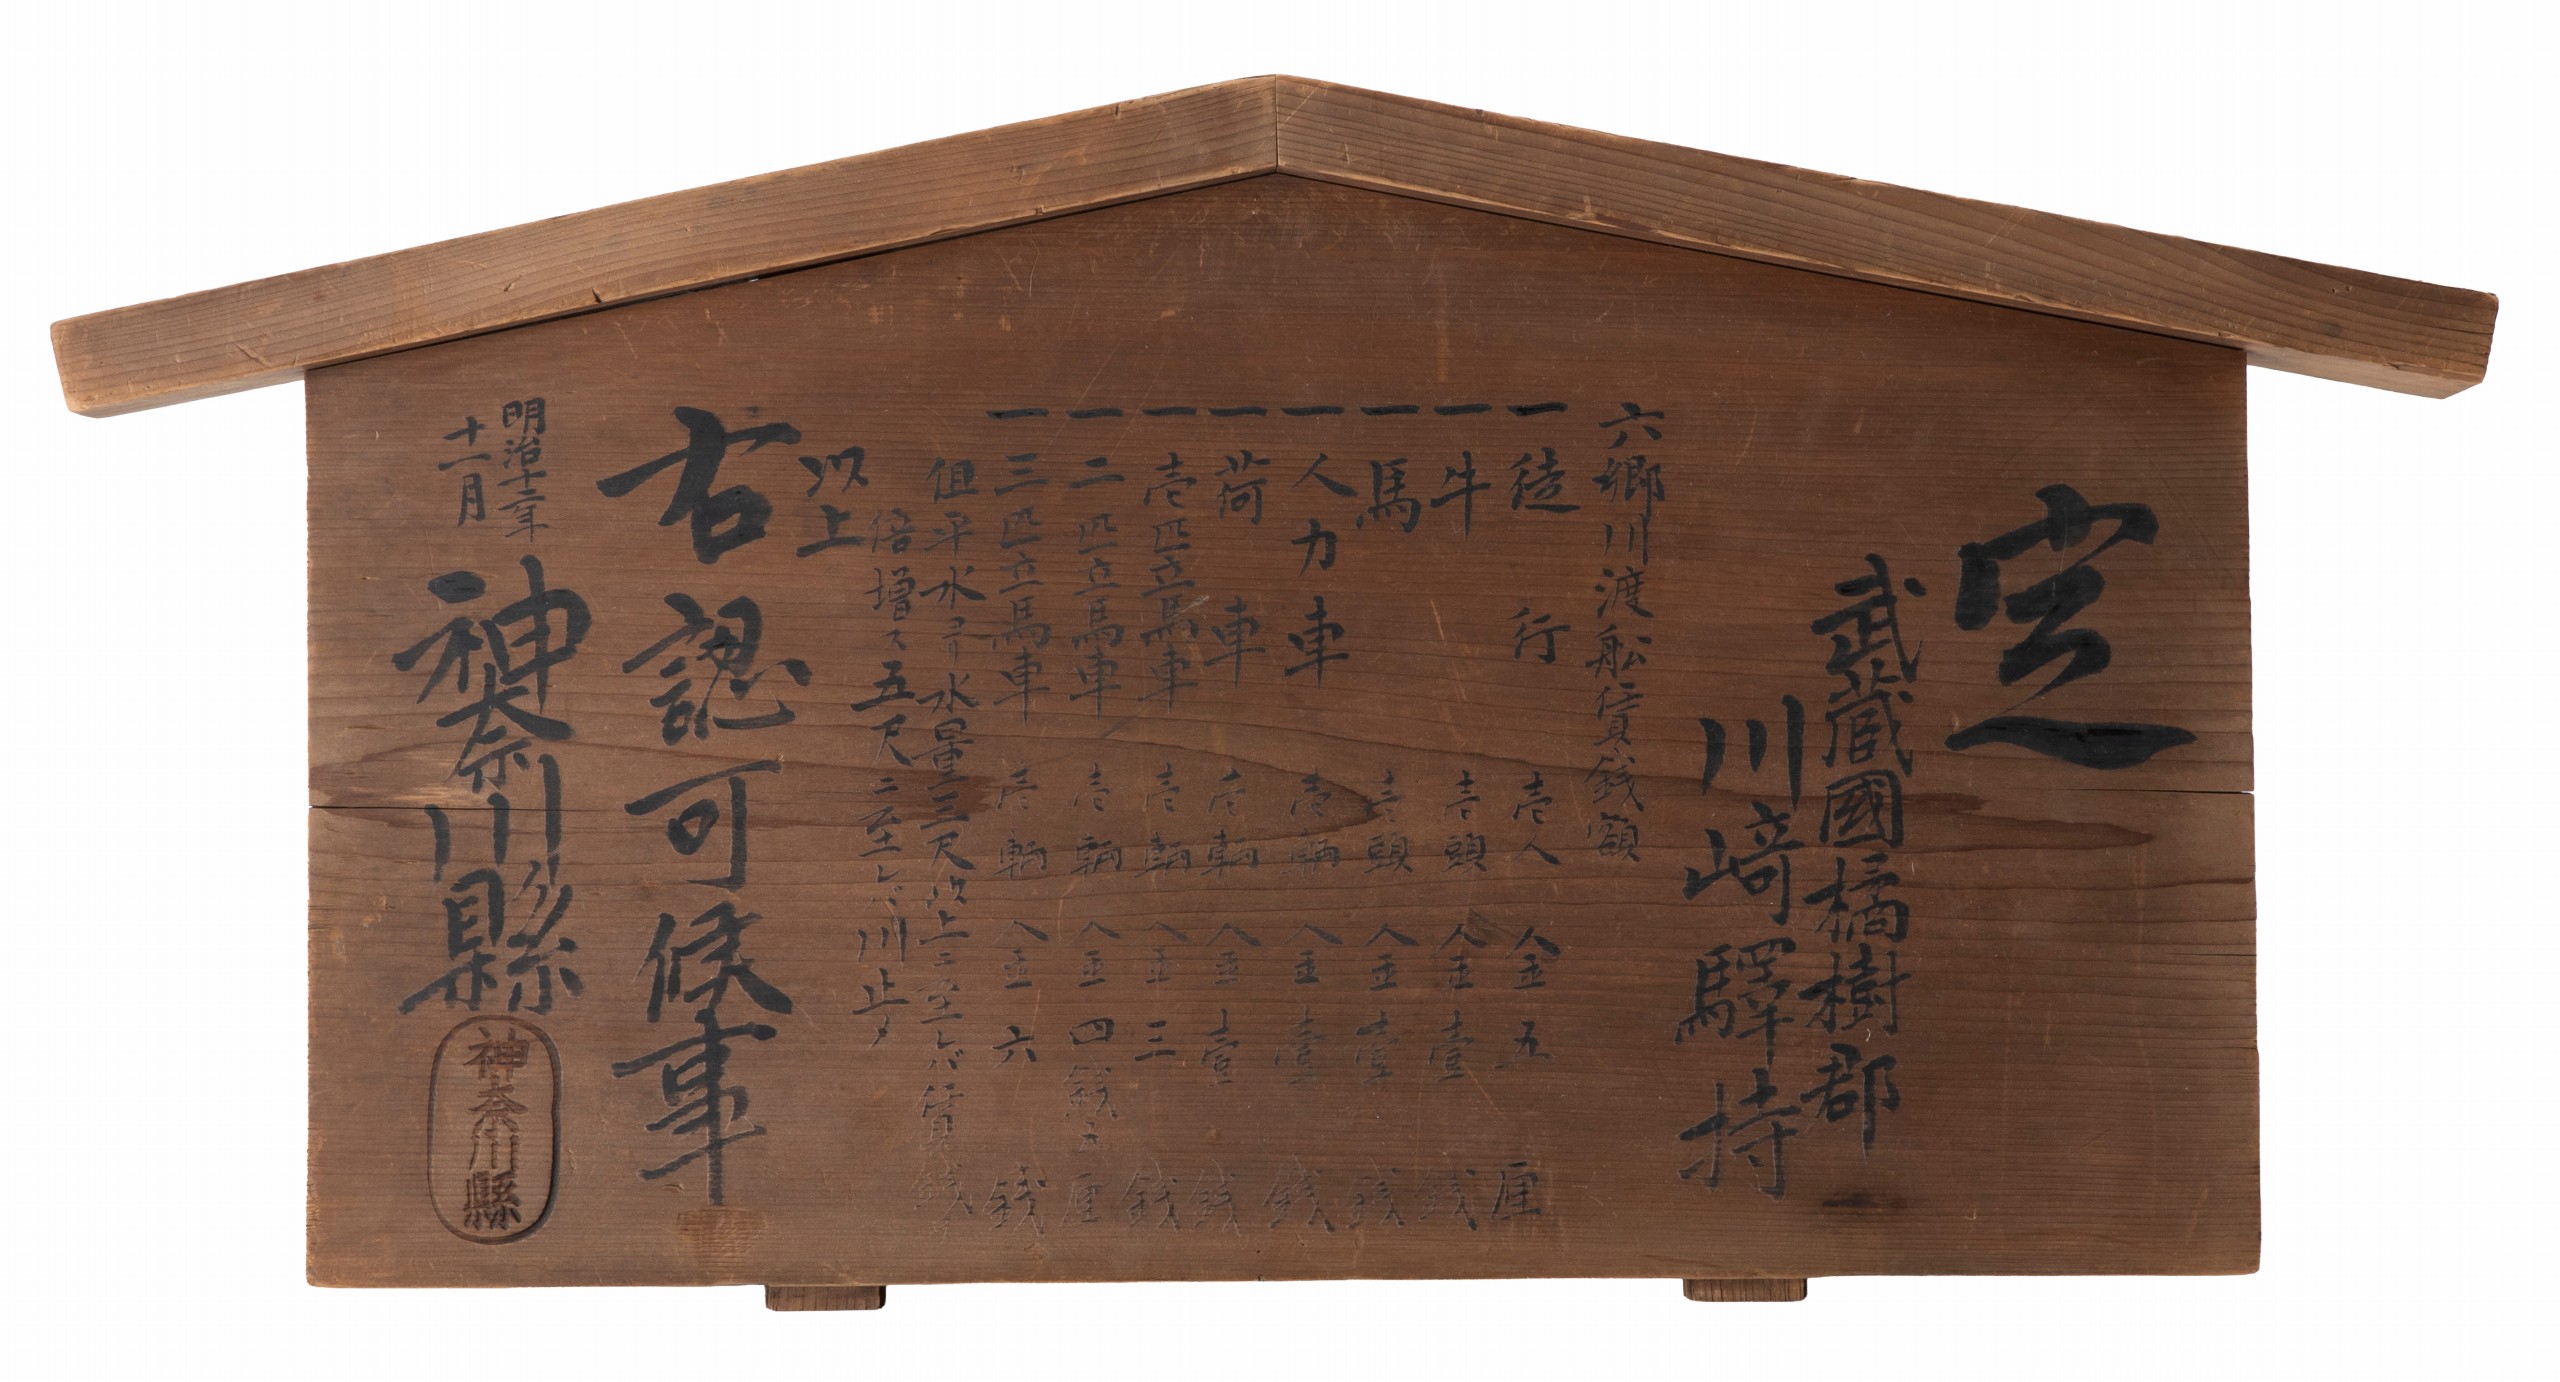 定
武蔵國橘樹郡
川﨑驛持
六郷川渡舩賃銭額
一徒行 壱人 金五厘
一牛 壱頭 仝金壹銭
一馬 壱頭 仝金壹銭
一人力車 壱輌 仝金壹銭
一荷車 壱輌 仝金壹銭
一壱匹立馬車 壱輌 仝金三銭
一二匹立馬車 壱輌 仝金四銭五厘
一三匹立馬車 壱輌 仝金六銭
但平水ヨリ水量三尺以上ニ至レバ賃銭
倍増ス五尺ニ至レバ川止メ
以上
右認可候事
明治十二年
十一月
神奈川縣
神奈川縣